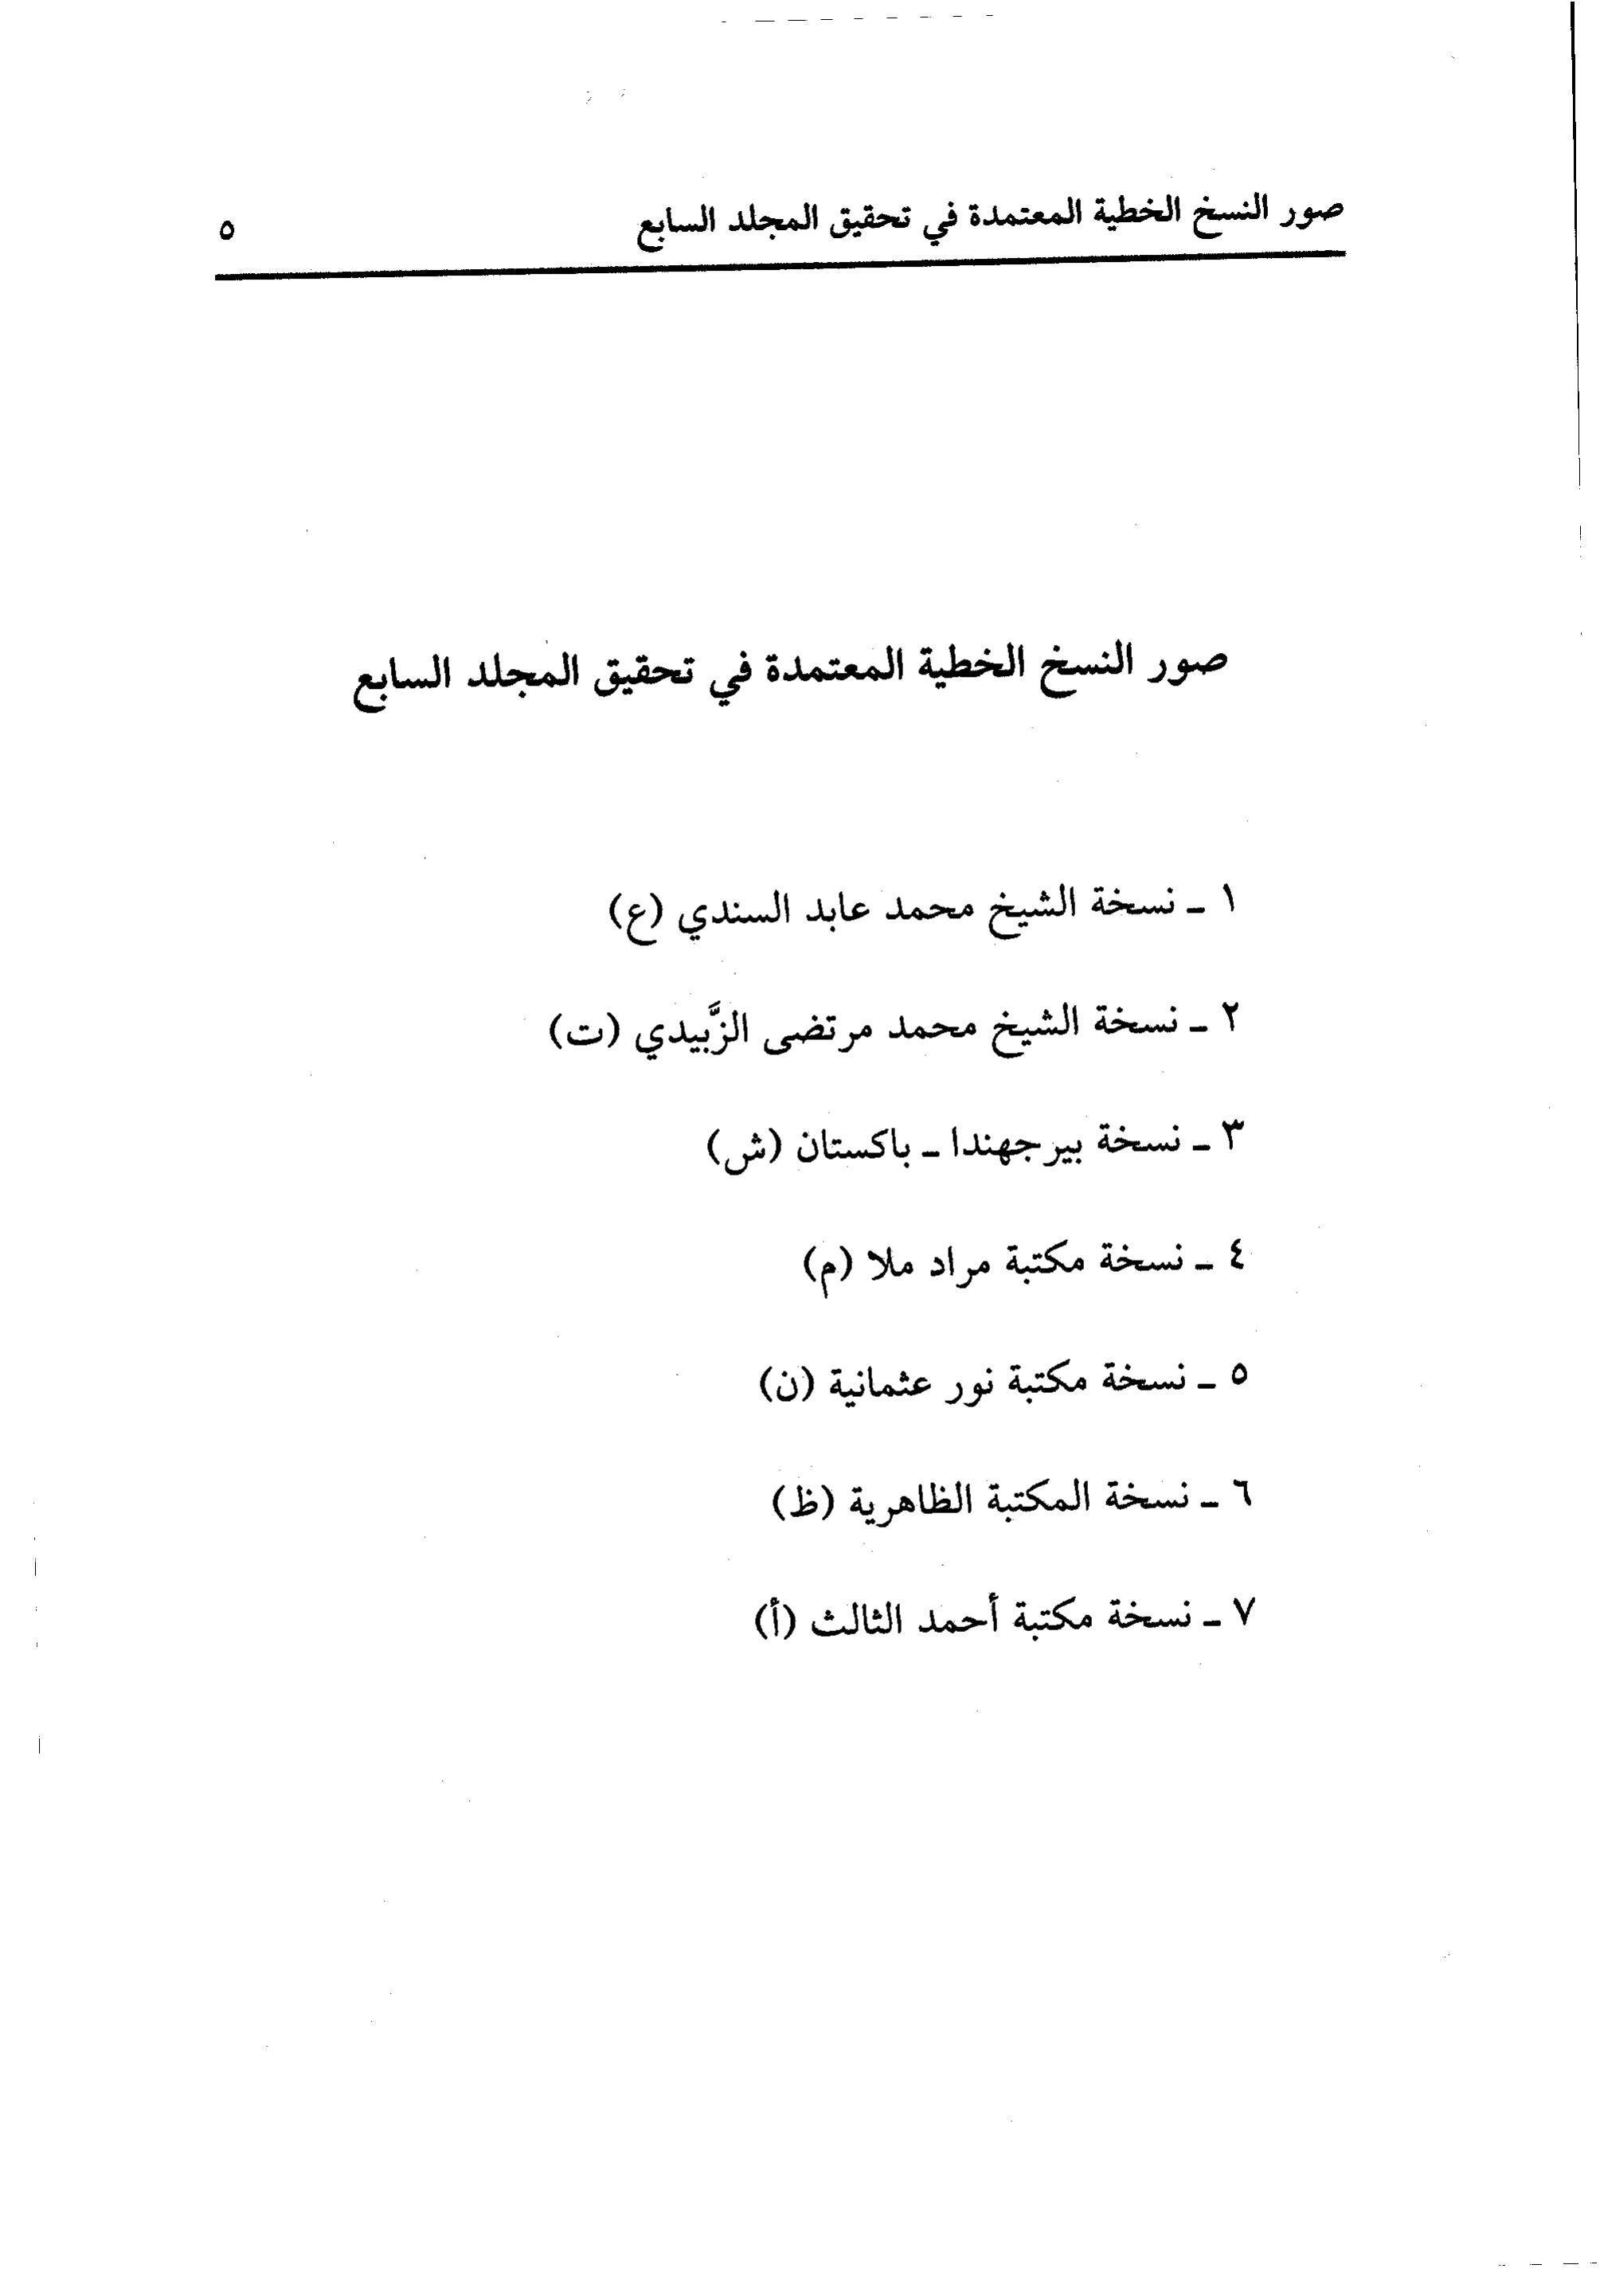 صور النسخ الخطية المعتمدة في تحقيق المجلد السابع ٥
صور النسخ الخطية المعتمدة في تحقيق المجلد السابع
١ ـ نسخة الشيخ محمد عابد السندي (ع)
٢ ـ نسخة الشيخ محمد مرتضى الزَّبيدي (ت)
٣ ـ نسخة بير جهندا ـ باكستان (ش)
٤ ـ نسخة مكتبة مراد ملا (م)
٥ ـ نسخة مكتبة نور عثمانية (ن)
٦ ـ نسخة المكتبة الظاهرية (ظ)
٧ ـ نسخة مكتبة أحمد الثالث (أ)